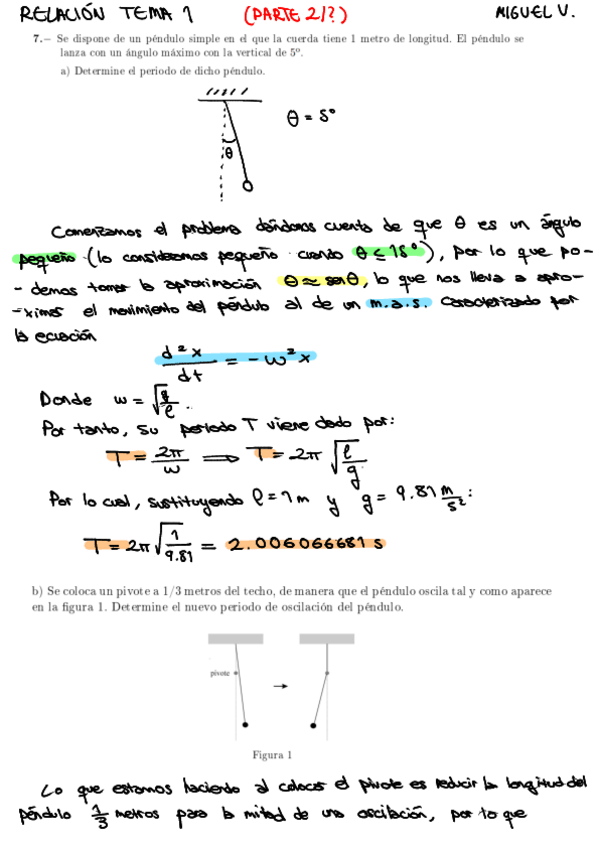 RELACIÓN TEMA 1 (PARTE 2/?) MIGUEL V.
7.— Se dispone de un péndulo simple en el que la cuerda tiene 1 metro de longitud. El péndulo se
lanza con un ángulo máximo con la vertical de 5º.
a) Determine el periodo de dicho péndulo.
θ = 5°
θ
Comenzamos el problema dándonos cuenta de que θ es un ángulo
pequeño (lo consideramos pequeño cuando θ ≤ 15°), por lo que po-
-demos tomar la aproximación θ ≈ senθ, lo que nos lleva a apro-
-ximar el movimiento del péndulo al de un m.a.s. caracterizado por
la ecuación
d²x/dt = -ω²x
Donde ω = √(g/ℓ).
Por tanto, su periodo T viene dado por:
T = 2π/ω ⟹ T = 2π √(ℓ/g)
Por lo cual, sustituyendo ℓ = 1 m y g = 9.81 m/s²:
T = 2π √(1/9.81) = 2.006066681 s
b) Se coloca un pivote a 1/3 metros del techo, de manera que el péndulo oscila tal y como aparece
en la figura 1. Determine el nuevo periodo de oscilación del péndulo.
pivote
Figura 1
Lo que estamos haciendo al colocar el pivote es reducir la longitud del
péndulo 1/3 metros para la mitad de una oscilación, por lo que